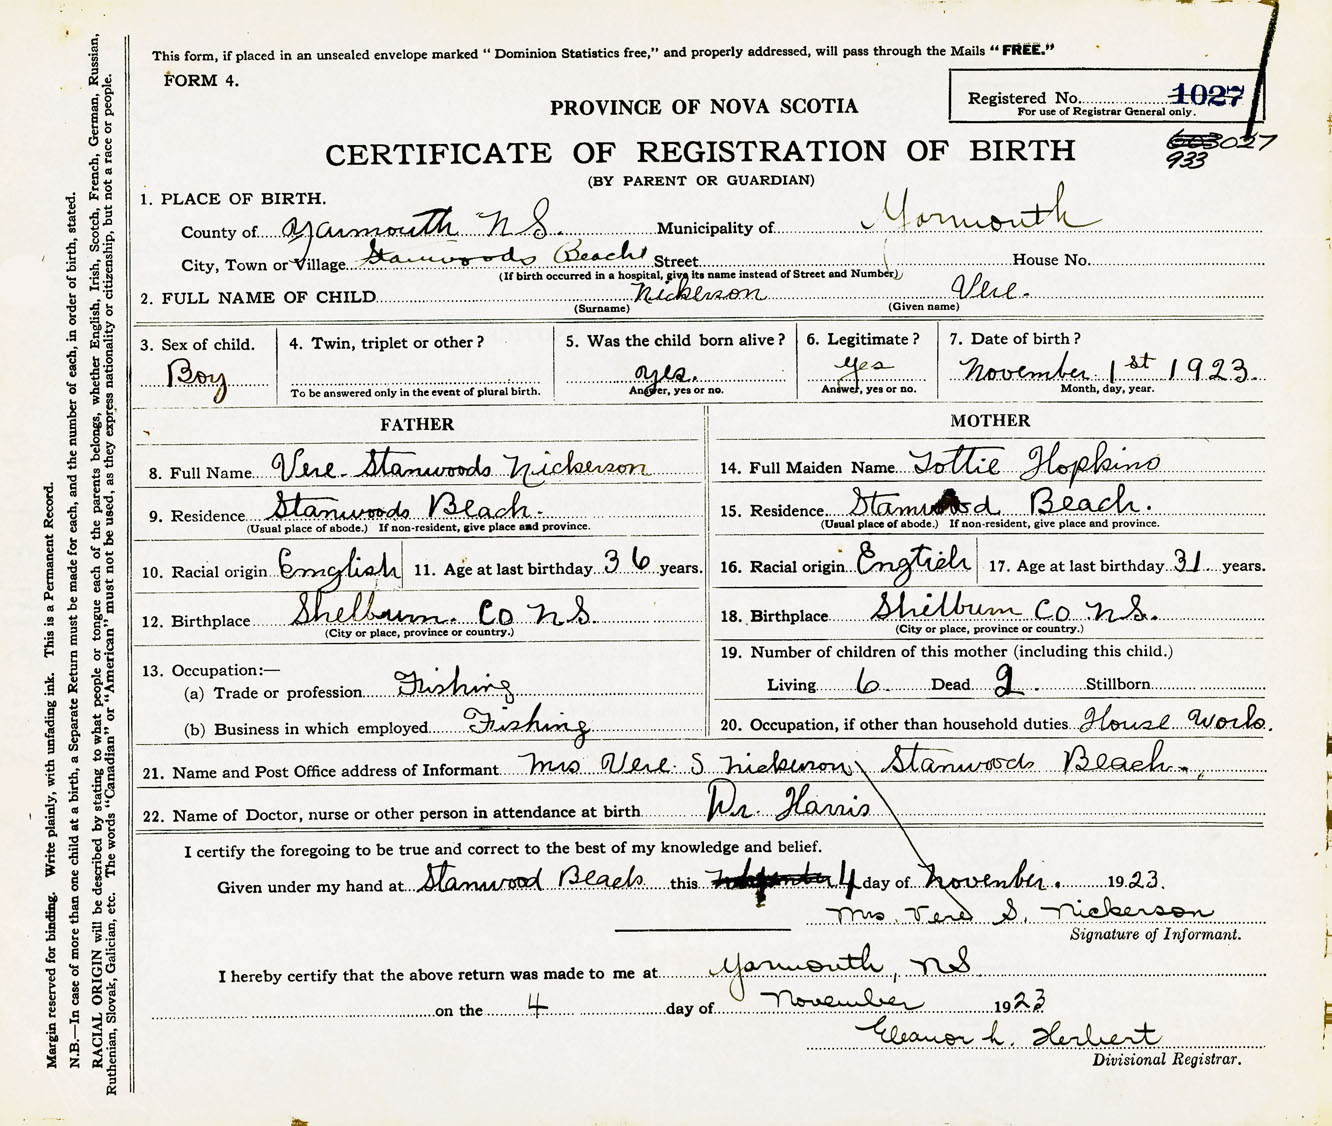 This form, if placed in an unsealed envelope marked “ Dominion Statistics free,” and properly addressed, will pass through the Mails “ FREE.”
FORM 4.
Registered No. 1027
For use of Registrar General only.
PROVINCE OF NOVA SCOTIA
CERTIFICATE OF REGISTRATION OF BIRTH
603027
933
(BY PARENT OR GUARDIAN)
1. PLACE OF BIRTH.
County of Yarmouth N S. Municipality of Yarmouth
City, Town or Village Stanwoods Beach Street House No.
(If birth occurred in a hospital, give its name instead of Street and Number)
2. FULL NAME OF CHILD Nickerson Vere.
(Surname) (Given name)
3. Sex of child. 4. Twin, triplet or other ? 5. Was the child born alive ? 6. Legitimate ? 7. Date of birth ?
Boy yes. yes November 1st 1923.
To be answered only in the event of plural birth. Answer, yes or no. Answer, yes or no. Month, day, year.
FATHER MOTHER
8. Full Name Vere Stanwoods Nickerson 14. Full Maiden Name Tottie Hopkins
9. Residence Stanwoods Beach. 15. Residence Stanwood Beach.
(Usual place of abode.) If non-resident, give place and province. (Usual place of abode.) If non-resident, give place and province.
10. Racial origin English 11. Age at last birthday 36 years. 16. Racial origin English 17. Age at last birthday 31 years.
12. Birthplace Shelburn. Co N S. 18. Birthplace Shelburn Co N S.
(City or place, province or country.) (City or place, province or country.)
13. Occupation:— 19. Number of children of this mother (including this child.)
(a) Trade or profession Fishing Living 6 Dead 2. Stillborn
(b) Business in which employed Fishing 20. Occupation, if other than household duties House Work.
21. Name and Post Office address of Informant Mrs Vere S Nickerson Stanwoods Beach.
22. Name of Doctor, nurse or other person in attendance at birth Dr. Harris
I certify the foregoing to be true and correct to the best of my knowledge and belief.
Given under my hand at Stanwood Beach this 4 day of November. 1923.
Mrs. Vere S. Nickerson
Signature of Informant.
I hereby certify that the above return was made to me at Yarmouth, N S
on the 4 day of November 1923
Eleanor L. Herbert
Divisional Registrar.
Margin reserved for binding. Write plainly, with unfading ink. This is a Permanent Record.
N.B.—In case of more than one child at a birth, a Separate Return must be made for each, and the number of each, in order of birth, stated.
RACIAL ORIGIN will be described by stating to what people or tongue each of the parents belongs, whether English, Irish, Scotch, French, German, Russian,
Ruthenian, Slovak, Galician, etc. The words “Canadian” or “American” must not be used, as they express nationality or citizenship, but not a race or people.